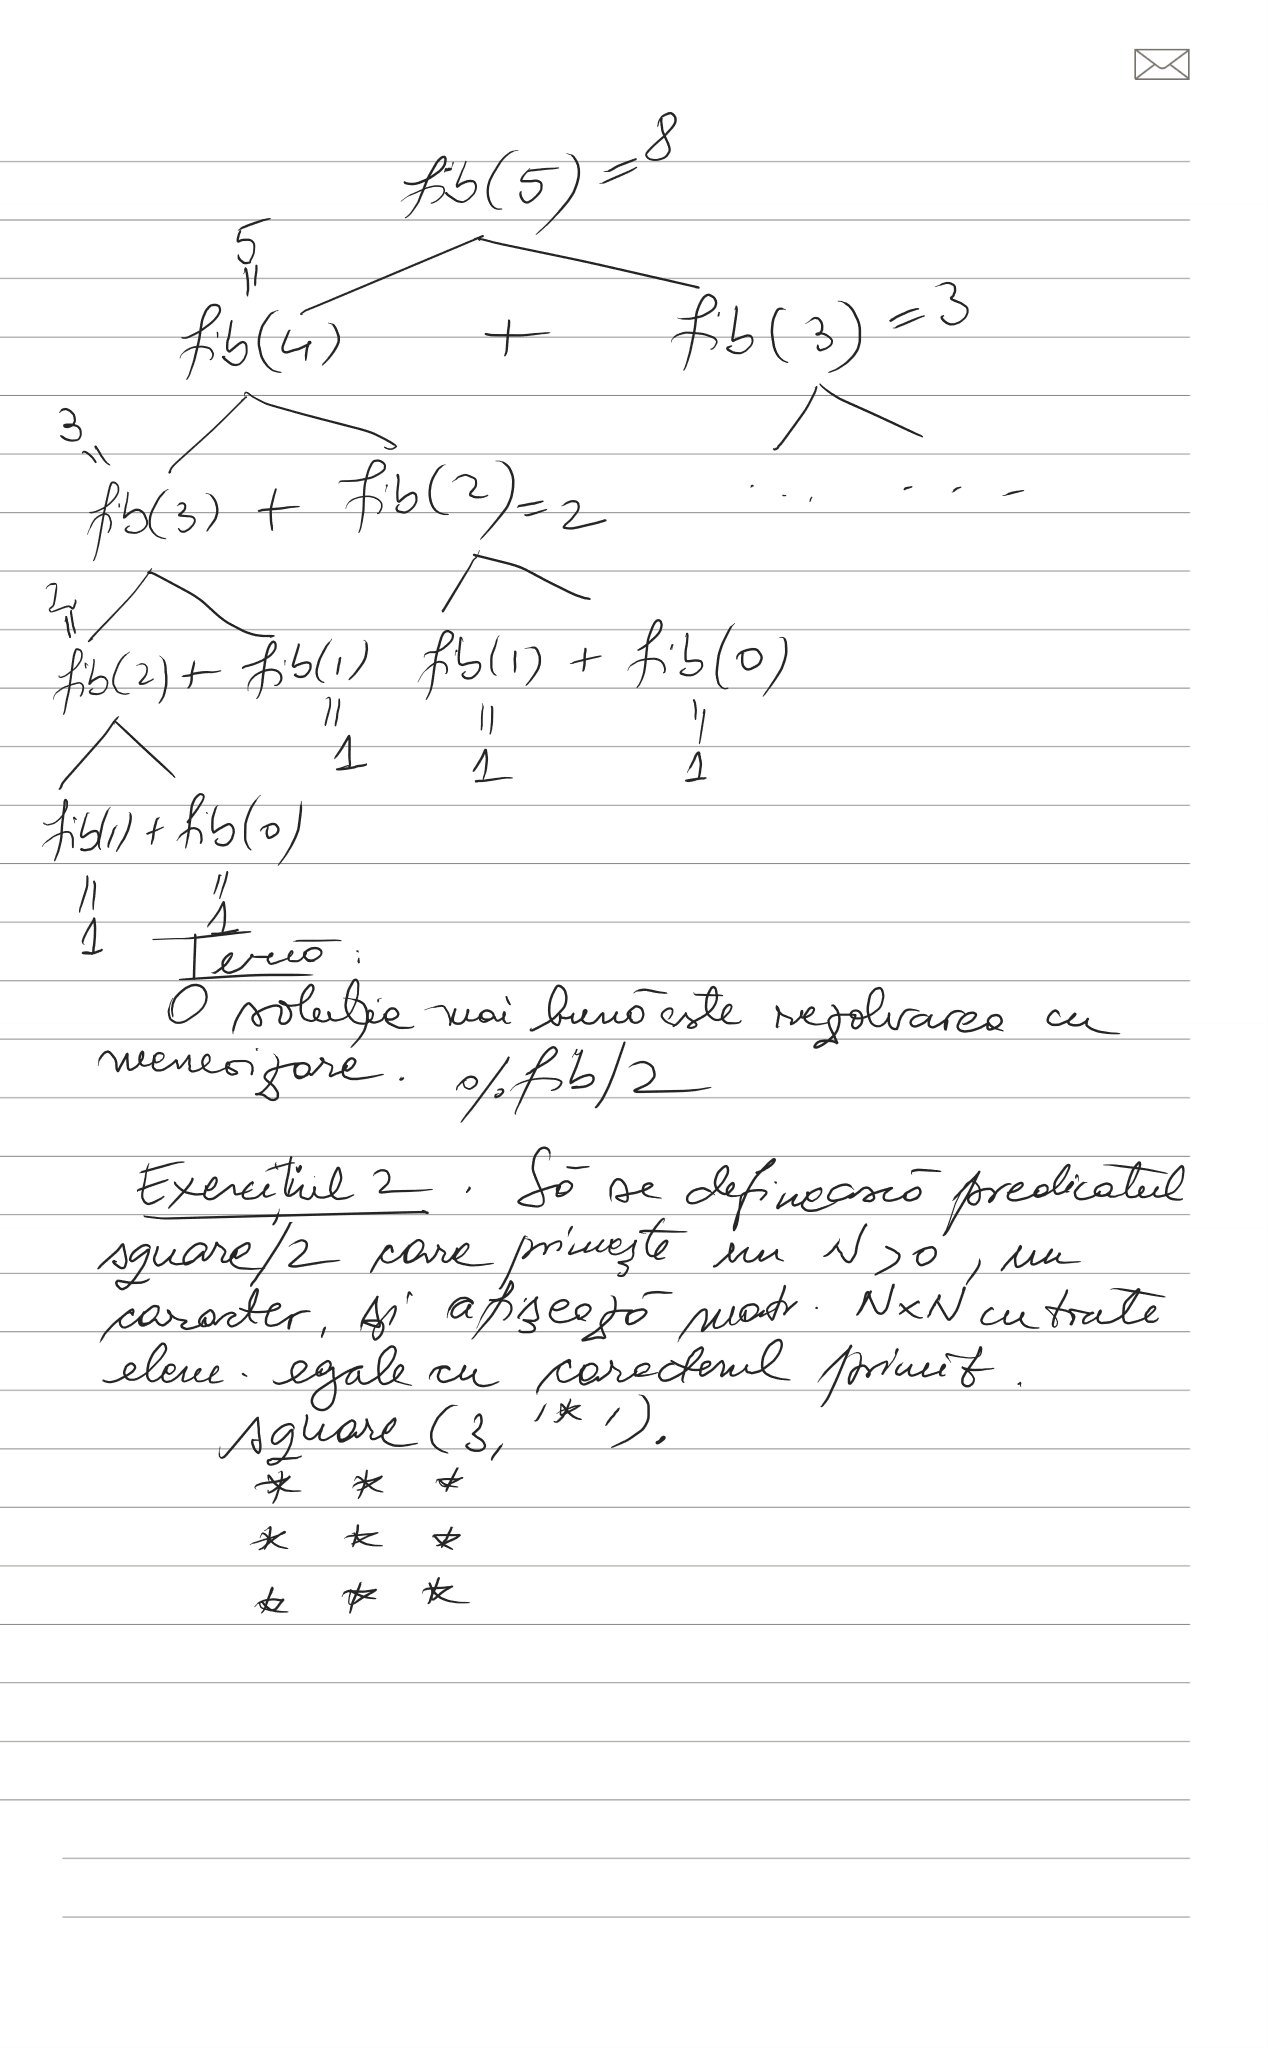 fib(5) = 8
5
=
fib(4) + fib(3) = 3
3
=
fib(3) + fib(2) = 2
.... - - -
2
=
fib(2) + fib(1) fib(1) + fib(0)
= = =
1 1 1
fib(1) + fib(0)
= =
1 1
Temă:
O soluție mai bună este rezolvarea cu
memoizare. % fib/2
Exercițiul 2. Să se definească predicatul
square/2 care primește un N>0, un
caracter, și afișează matr. N×N cu toate
elem. egale cu caracterul primit.
square(3, '*').
* * *
* * *
* * *